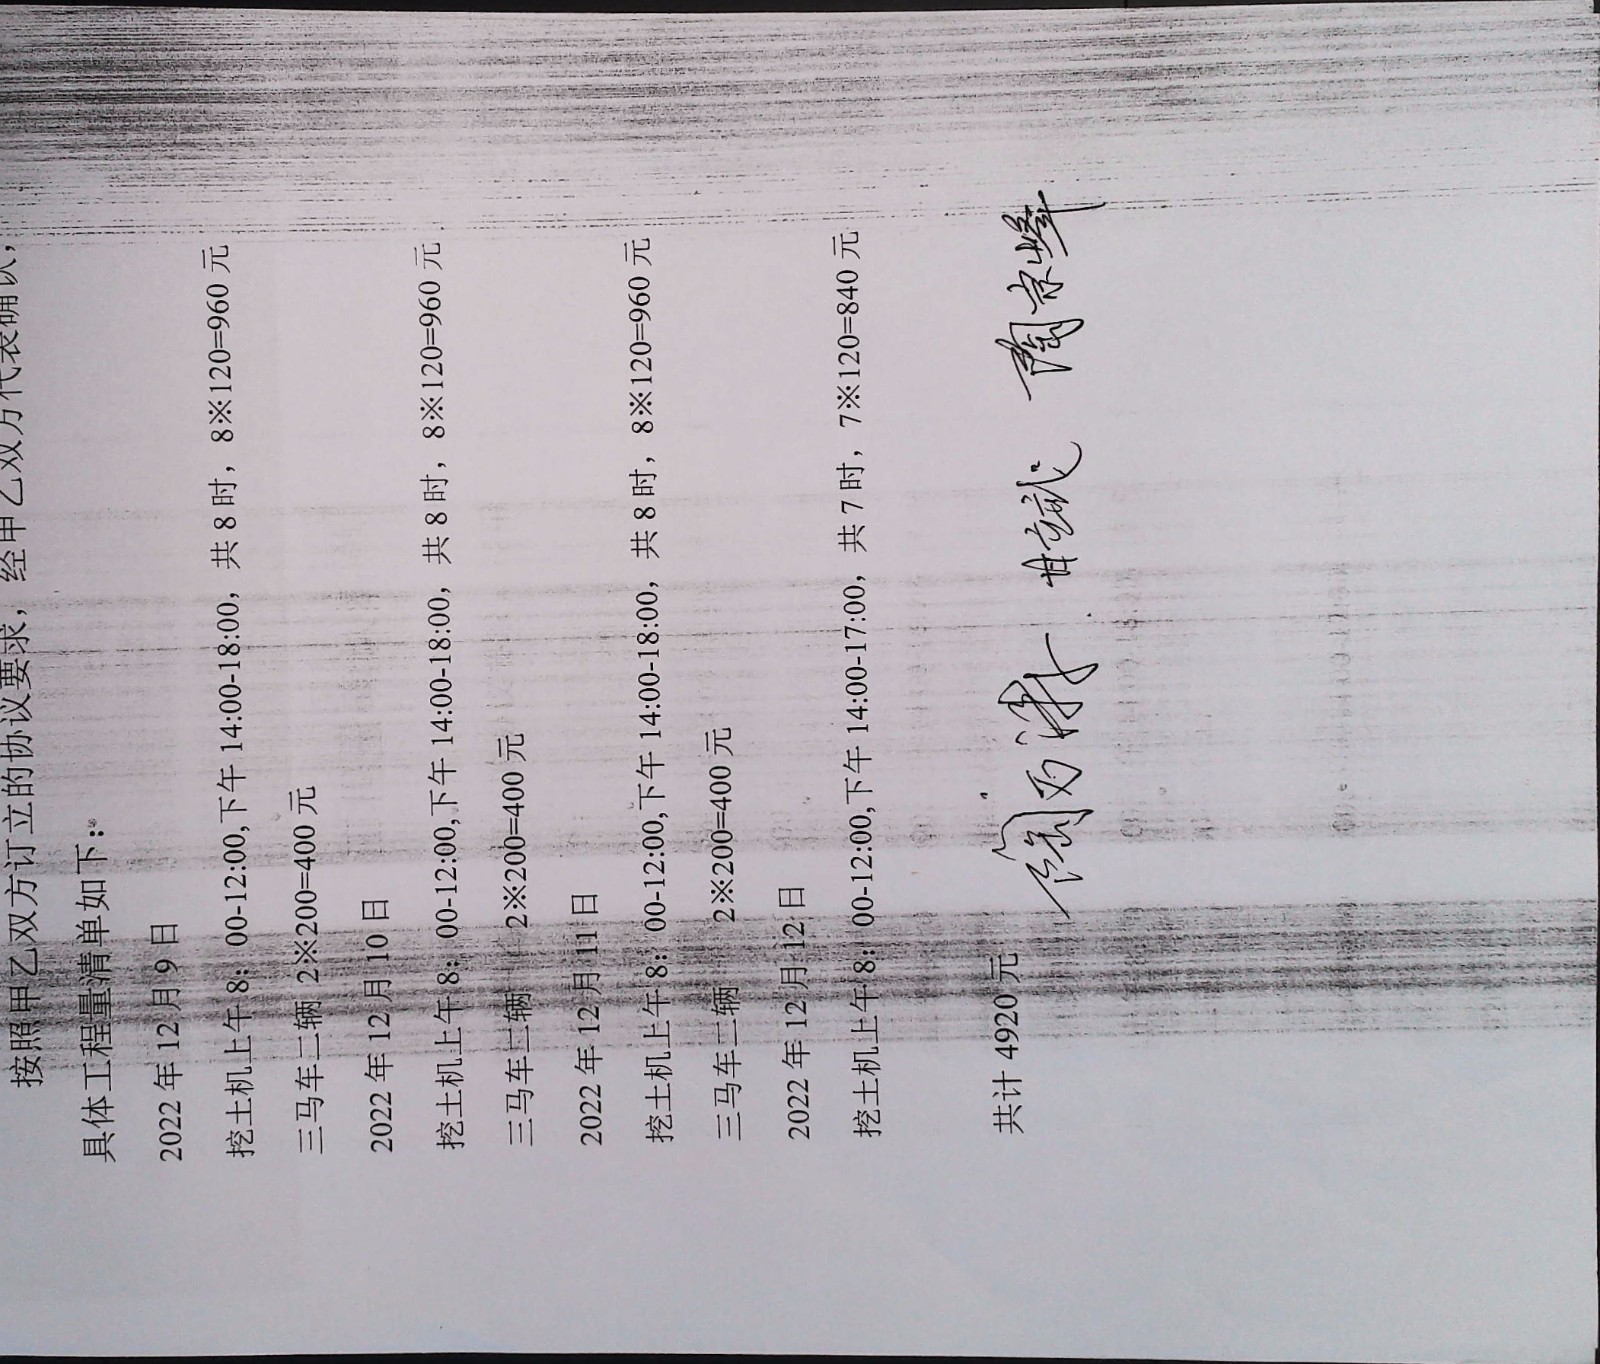 按照甲乙双方订立的协议要求，经甲乙双方代表确认，
具体工程量清单如下：
2022 年 12 月 9 日
挖土机上午 8：00-12:00,下午 14:00-18:00，共 8 时，8※120=960 元
三马车二辆 2※200=400 元
2022 年 12 月 10 日
挖土机上午 8：00-12:00,下午 14:00-18:00，共 8 时，8※120=960 元
三马车二辆 2※200=400 元
2022 年 12 月 11 日
挖土机上午 8：00-12:00,下午 14:00-18:00，共 8 时，8※120=960 元
三马车二辆 2※200=400 元
2022 年 12 月 12 日
挖土机上午 8：00-12:00,下午 14:00-17:00，共 7 时，7※120=840 元
共计 4920 元